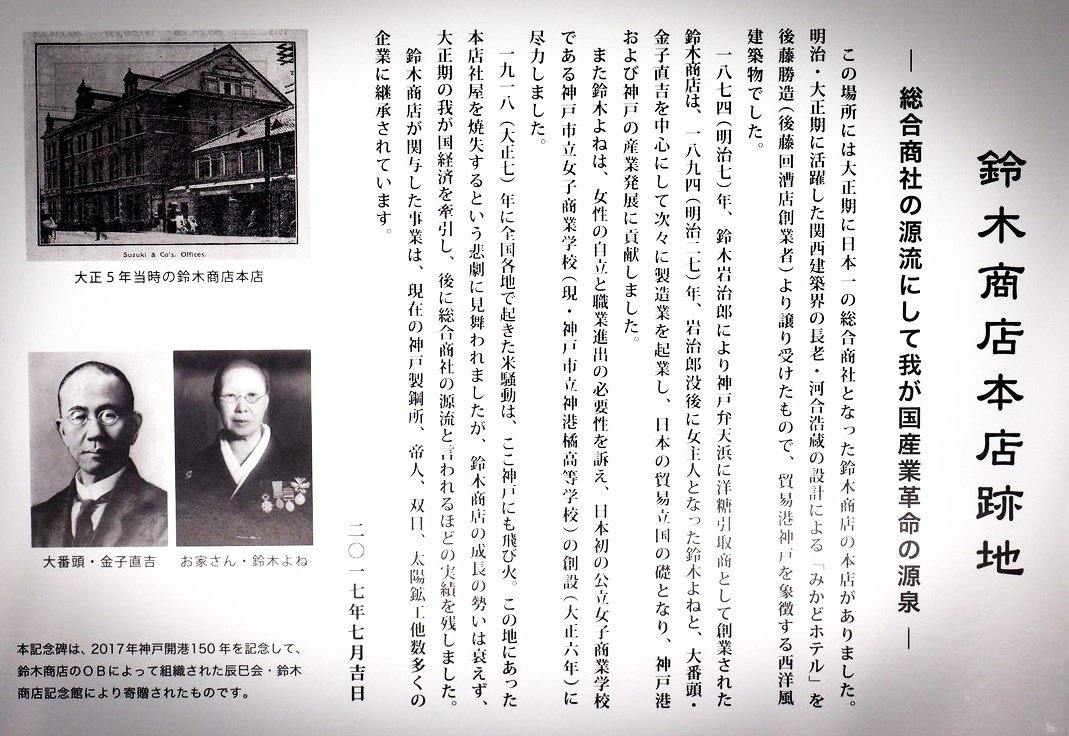 鈴木商店本店跡地
― 総合商社の源流にして我が国産業革命の源泉 ―
この場所には大正期に日本一の総合商社となった鈴木商店の本店がありました。
明治・大正期に活躍した関西建築界の長老・河合浩蔵の設計による「みかどホテル」を
後藤勝造(後藤回漕店創業者)より譲り受けたもので、貿易港神戸を象徴する西洋風
建築物でした。
一八七四(明治七)年、鈴木岩治郎により神戸弁天浜に洋糖引取商として創業された
鈴木商店は、一八九四(明治二七)年、岩治郎没後に女主人となった鈴木よねと、大番頭・
金子直吉を中心にして次々に製造業を起業し、日本の貿易立国の礎となり、神戸港
および神戸の産業発展に貢献しました。
また鈴木よねは、女性の自立と職業進出の必要性を訴え、日本初の公立女子商業学校
である神戸市立女子商業学校(現・神戸市立神港橘高等学校)の創設(大正六年)に
尽力しました。
一九一八(大正七)年に全国各地で起きた米騒動は、ここ神戸にも飛び火。この地にあった
本店社屋を焼失するという悲劇に見舞われましたが、鈴木商店の成長の勢いは衰えず、
大正期の我が国経済を牽引し、後に総合商社の源流と言われるほどの実績を残しました。
鈴木商店が関与した事業は、現在の神戸製鋼所、帝人、双日、太陽鉱工他数多くの
企業に継承されています。
二〇一七年七月吉日
Suzuki & Co's. Offices.
大正5年当時の鈴木商店本店
大番頭・金子直吉
お家さん・鈴木よね
本記念碑は、2017年神戸開港150年を記念して、
鈴木商店のOBによって組織された辰巳会・鈴木
商店記念館により寄贈されたものです。